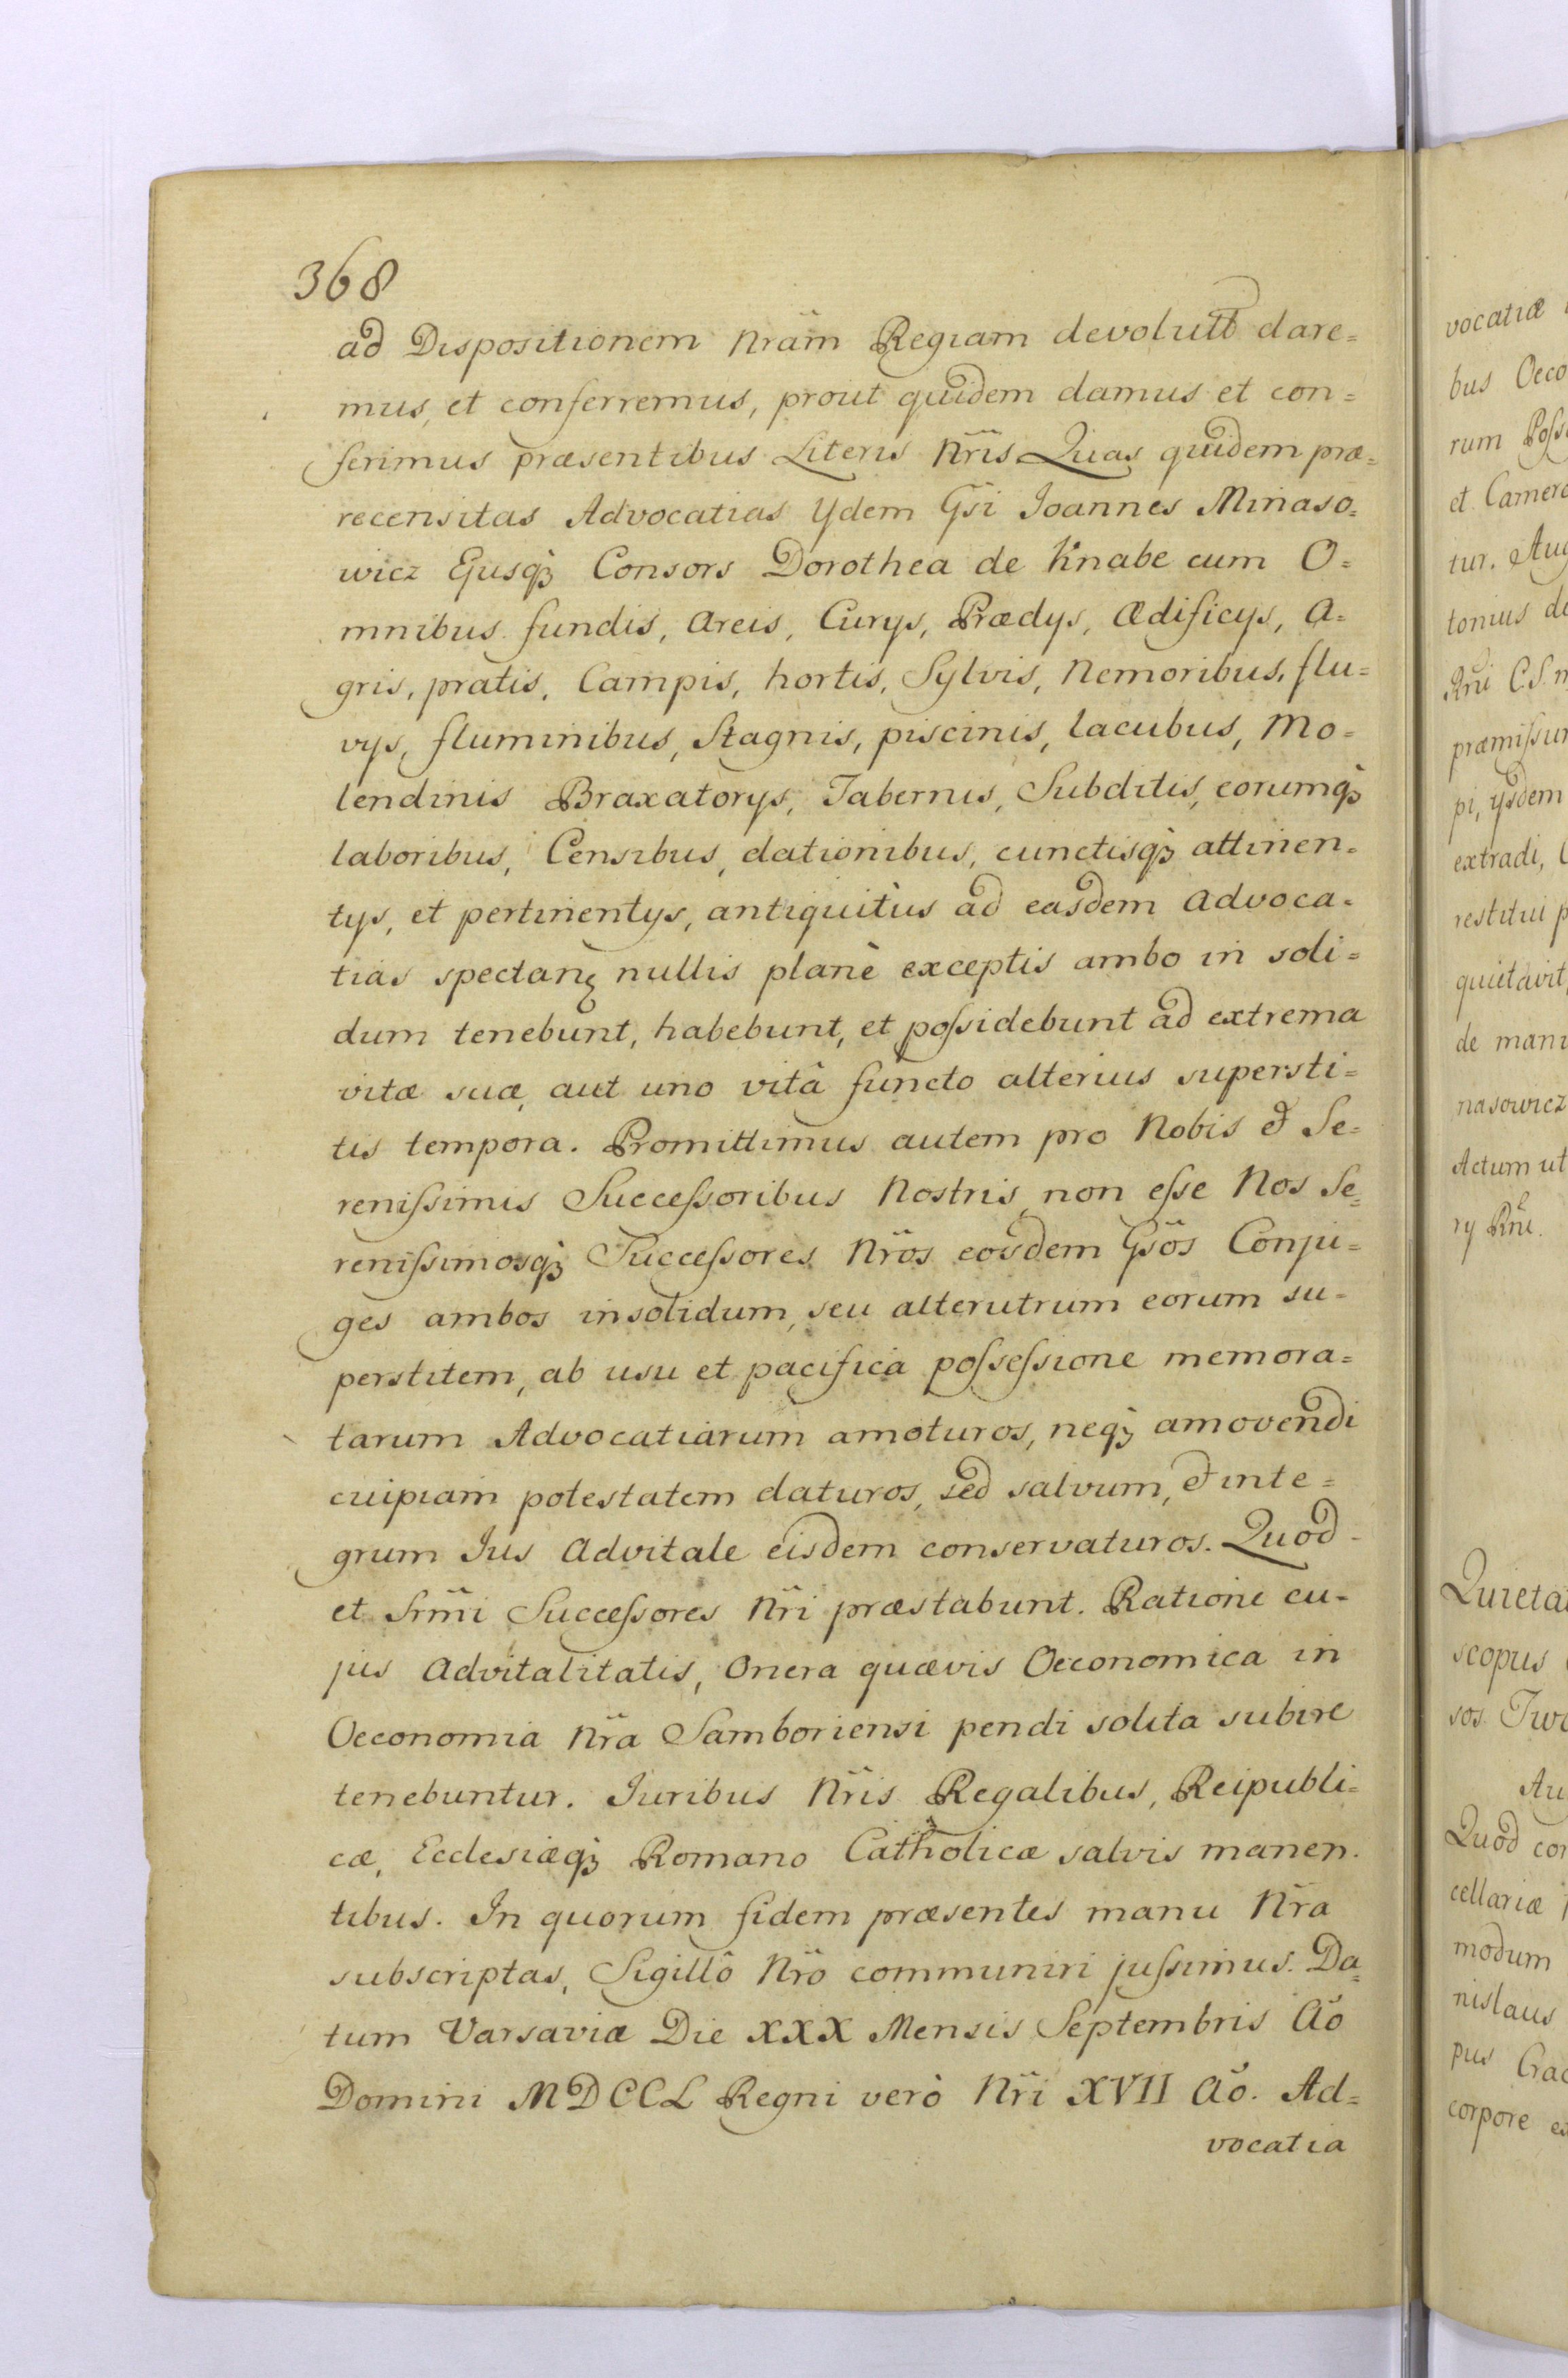 368
ad Dispositionem Nrãm Regiam devolutt dare=
mus, et conferremus, prout quidem damus et con=
ferimus præsentibus Literis Nrĩs Quas quidem præ=
recensitas Advocatias Ydem Gsi Joannes Minaso=
wicz Ejusqꝫ Consors Dorothea de Knabe cum O=
mnibus fundis, areis, Curys, Prædys, Ædificys, A=
gris, pratis, Campis, hortis, Sylvis, Nemoribus, flu=
vys, fluminibus, Stagnis, piscinis, lacubus, Mo=
lendinis Braxatorys, Tabernis, Subditis, eorumqꝫ
laboribus, Censibus, dationibus, cunctisqꝫ attinen=
tys, et pertinentys, antiquitùs ad easdem Advoca=
tias spectanꝫ nullis planè exceptis ambo in soli=
dum tenebunt, habebunt, et poſsidebunt ad extrema
vitæ suæ, aut uno vitâ functo alterius supersti=
tis tempora. Promittimus autem pro Nobis & Se=
reniſsimis Succeſsoribus Nostris, non eſse Nos Se=
reniſsimosqꝫ Succeſsores Nrõs eosdem Gsõs Conju=
ges ambos insolidum, seu alterutrum eorum su=
perstitem, ab usu et pacifica poſseſsione memora=
tarum Advocatiarum amoturos, neqꝫ amovendi
cuipiam potestatem daturos, sed salvum, & inte=
grum Jus Advitale eisdem conservaturos. Quod
et Srm̃i Succeſsores Nrĩ præstabunt. Ratione cu=
jus Advitalitatis, Onera quævis Oeconomica in
Oeconomia Nrã Samboriensi pendi solita subire
tenebuntur. Juribus Nrĩs Regalibus, Reipubli=
cæ, Ecclesiæqꝫ Romano Catholicæ salvis manen=
tibus. In quorum fidem præsentes manu Nrã
subscriptas, Sigillô Nrõ communiri juſsimus. Da=
tum Varsaviæ Die XXX Mensis Septembris Aõ
Domini MDCCL Regni verò Nrĩ XVII Aõ. Ad=
vocatia
vocatiæ
bus Oeco
rum Poſs
et Camer
tur. Aug
tonius de
Rni C.S.
præmiſsu
pi, ysdem
extradi,
restitui p
quietavit
de man
nasowicz
Actum ut
ry Rni.
Quieta
scopus
sos
Au
Quod con
cellariæ
modum
nislaus
pus Crac
corpore